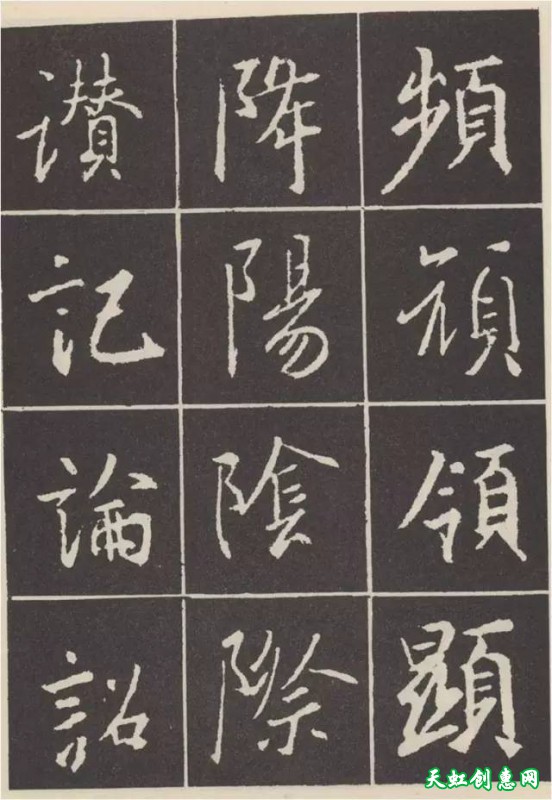 頻領顯
降陽陰際
讚記論詔
天虹创惠网